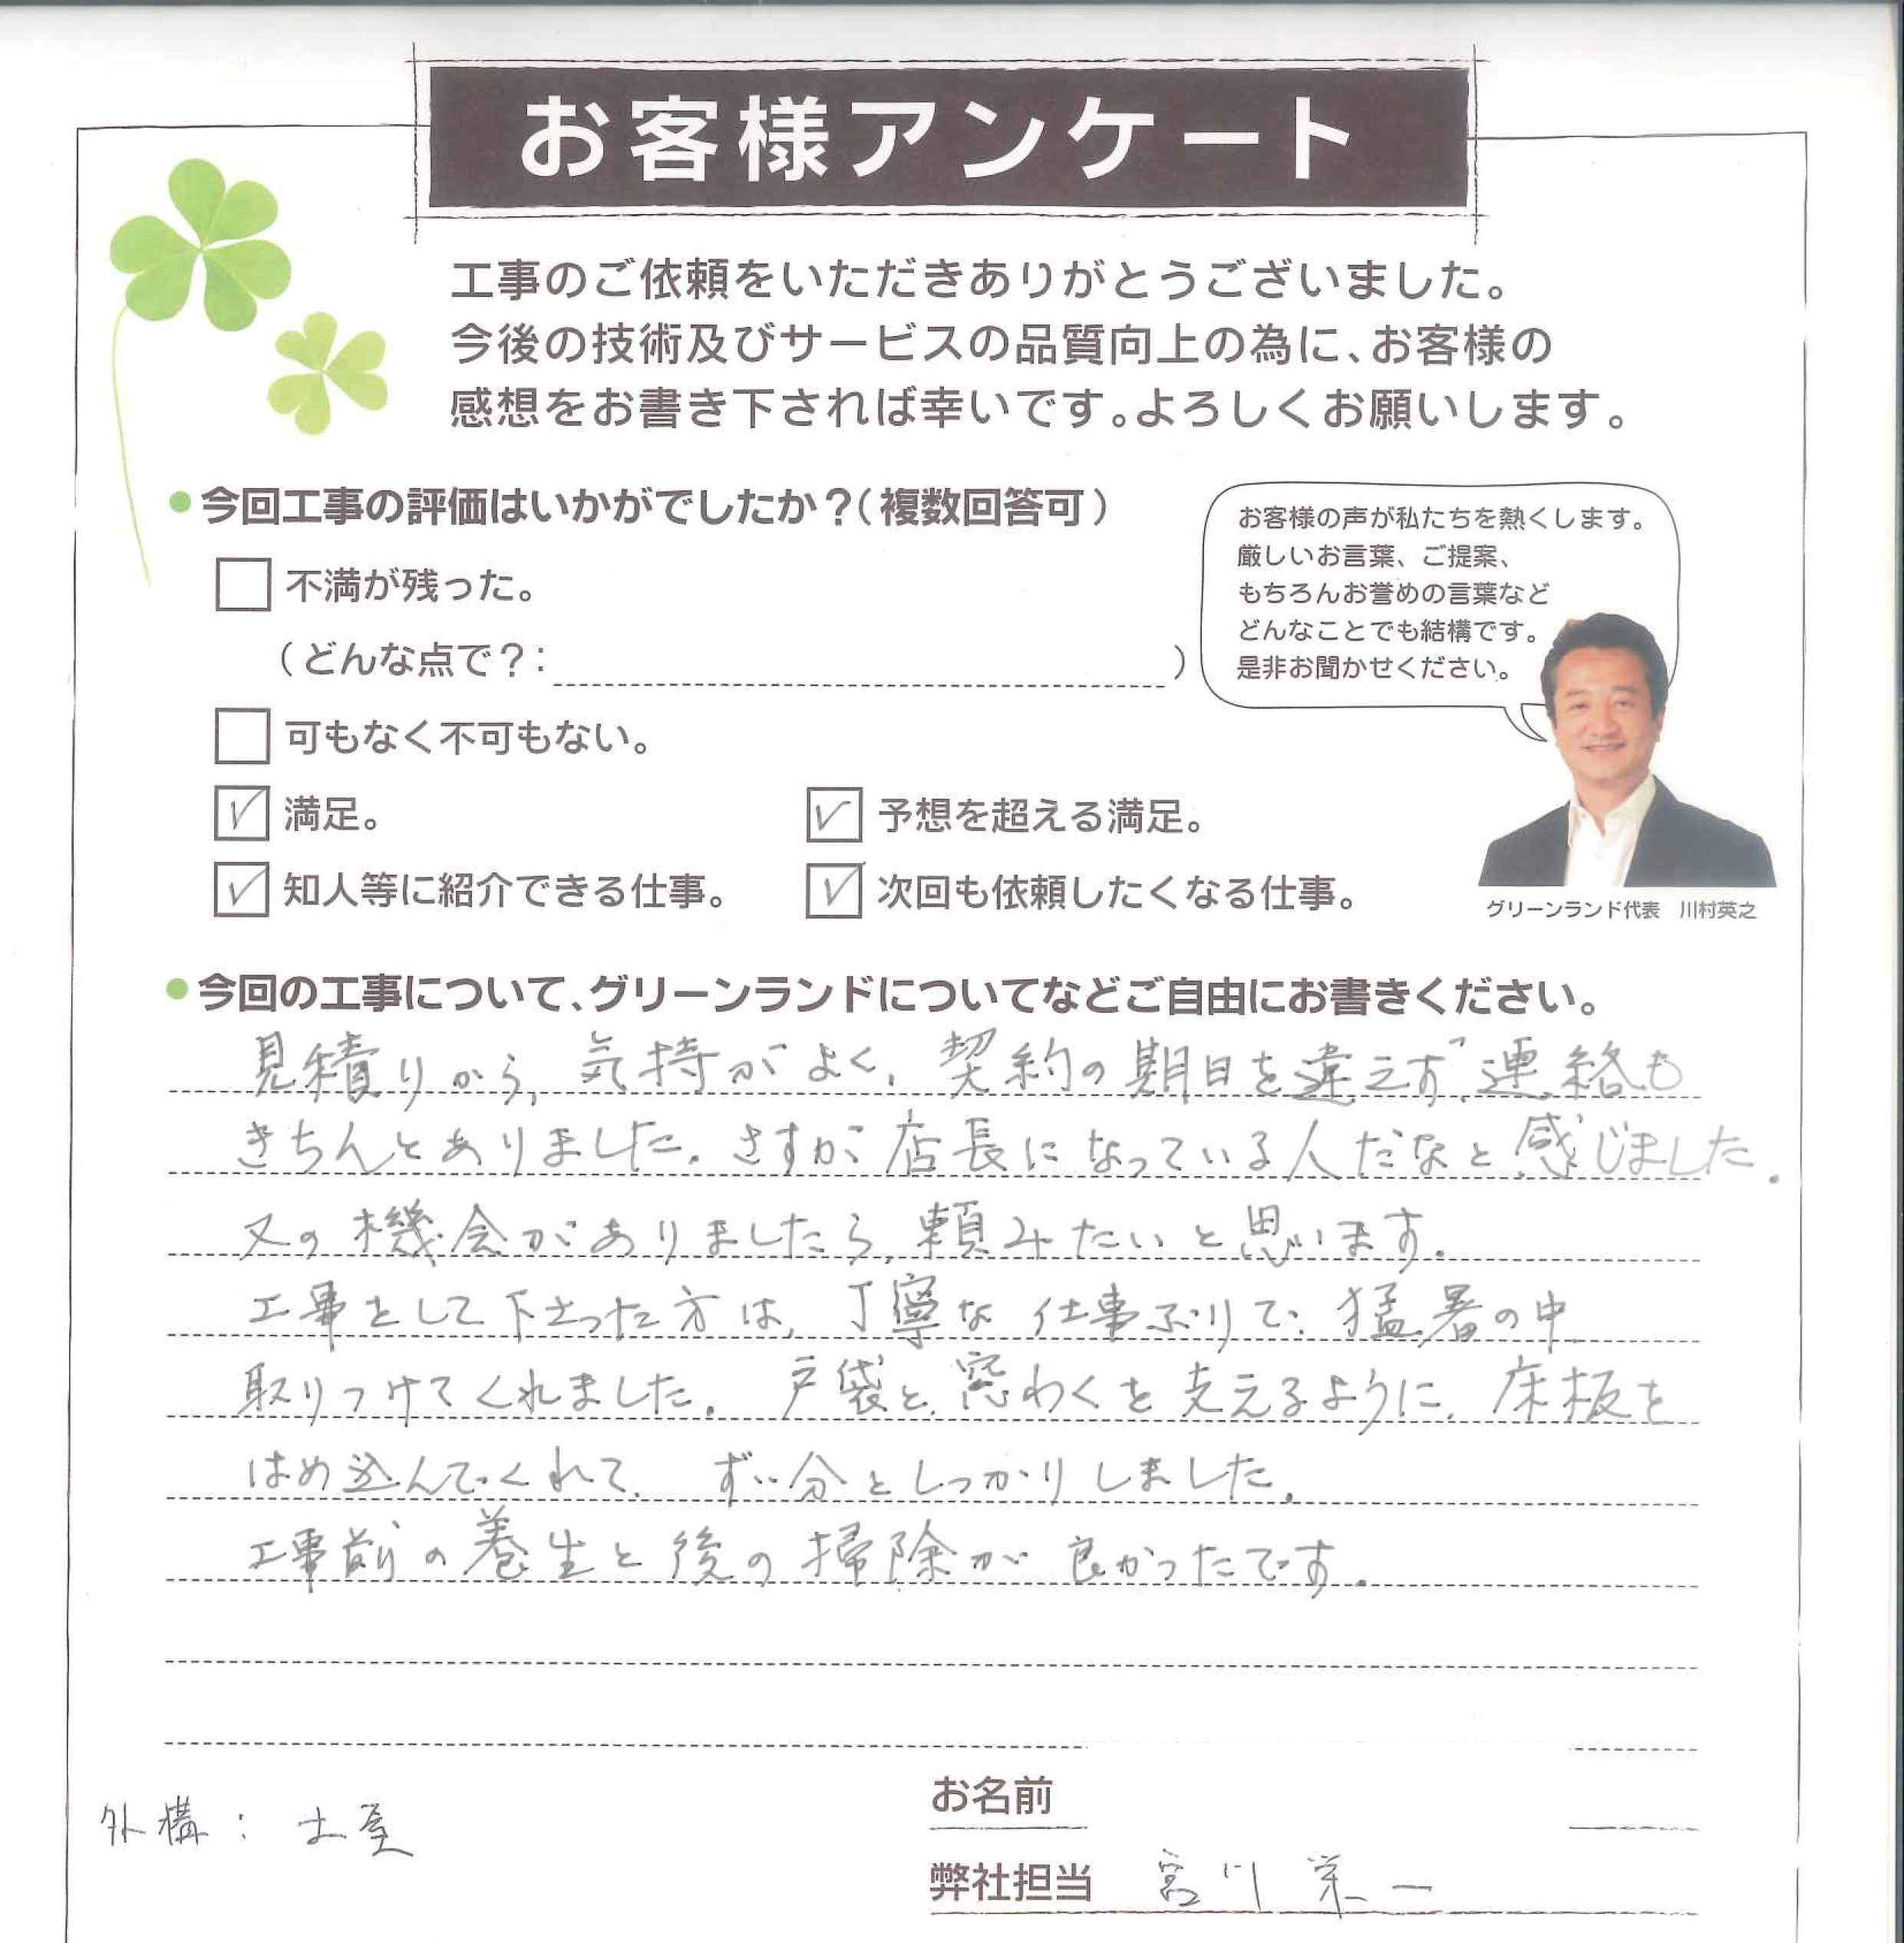 お客様アンケート
工事のご依頼をいただきありがとうございました。
今後の技術及びサービスの品質向上の為に、お客様の
感想をお書き下されば幸いです。よろしくお願いします。
今回工事の評価はいかがでしたか？（複数回答可）
不満が残った。
（どんな点で？：　　　）
可もなく不可もない。
満足。
予想を超える満足。
知人等に紹介できる仕事。
次回も依頼したくなる仕事。
お客様の声が私たちを熱くします。
厳しいお言葉、ご提案、
もちろんお誉めの言葉など
どんなことでも結構です。
是非お聞かせください。
グリーンランド代表　川村英之
今回の工事について、グリーンランドについてなどご自由にお書きください。
見積りから、気持がよく、契約の期日を違えず、連絡も
きちんとありました。さすが店長になっている人だなと感じました。
又の機会がありましたら、頼みたいと思います。
工事をして下さった方は、丁寧な仕事ぶりで、猛暑の中
取りつけてくれました。戸袋と、窓わくを支えるように、床板を
はめ込んでくれて、ずい分としっかりしました。
工事前の養生と後の掃除が良かったです。
お名前
外構：土屋
弊社担当　宮川栄一